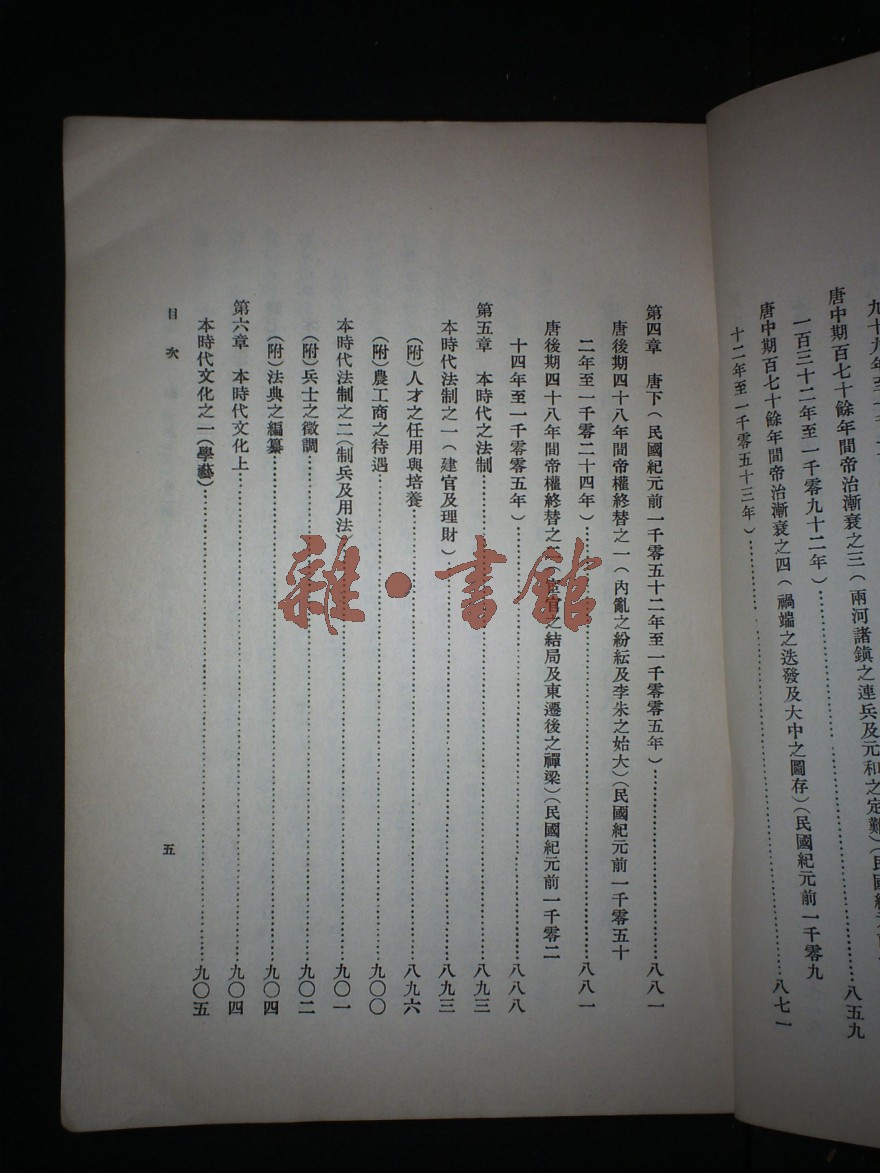 九十九年至一千
唐中期百七十餘年間帝治漸衰之三（兩河諸鎮之連兵及元和之定難）（民國紀元前
一百三十二年至一千零九十二年）八五九
唐中期百七十餘年間帝治漸衰之四（禍端之迭發及大中之圖存）（民國紀元前一千零九
十二年至一千零五十三年）八七一
第四章　唐下（民國紀元前一千零五十二年至一千零零五年）八八一
唐後期四十八年間帝權終替之一（內亂之紛紜及李朱之始大）（民國紀元前一千零五十
二年至一千零二十四年）八八一
唐後期四十八年間帝權終替之二（宦官之結局及東遷後之禪梁）（民國紀元前一千零二
十四年至一千零零五年）八八八
第五章　本時代之法制八九三
本時代法制之一（建官及理財）八九三
（附）人才之任用與培養八九六
（附）農工商之待遇九〇〇
本時代法制之二（制兵及用法）九〇一
（附）兵士之徵調九〇二
（附）法典之編纂九〇四
第六章　本時代文化上九〇四
本時代文化之一（學藝）九〇五
目次
五
雜·書館